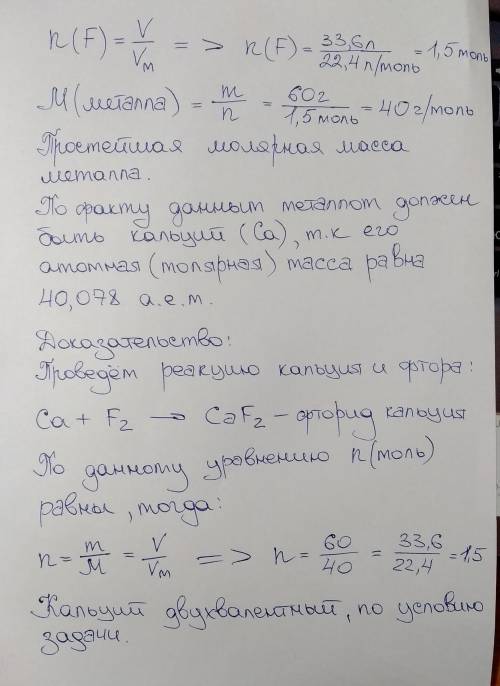 n(F) = V/Vm => n(F) = 33,6л/22,4л/моль = 1,5 моль
M(металла) = m/n = 60г/1,5моль = 40г/моль
Простейшая молярная масса
металла.
По факту данным металлом должен
быть кальций (Ca), т.к его
атомная (молярная) масса равна
40,078 а.е.м.
Доказательство:
Проведём реакцию кальция и фтора:
Ca + F₂ → CaF₂ – фторид кальция
По данному уравнению n(моль)
равны, тогда:
n = m/M = V/Vm => n = 60/40 = 33,6/22,4 = 1,5
Кальций двухвалентный, по условию
задачи.